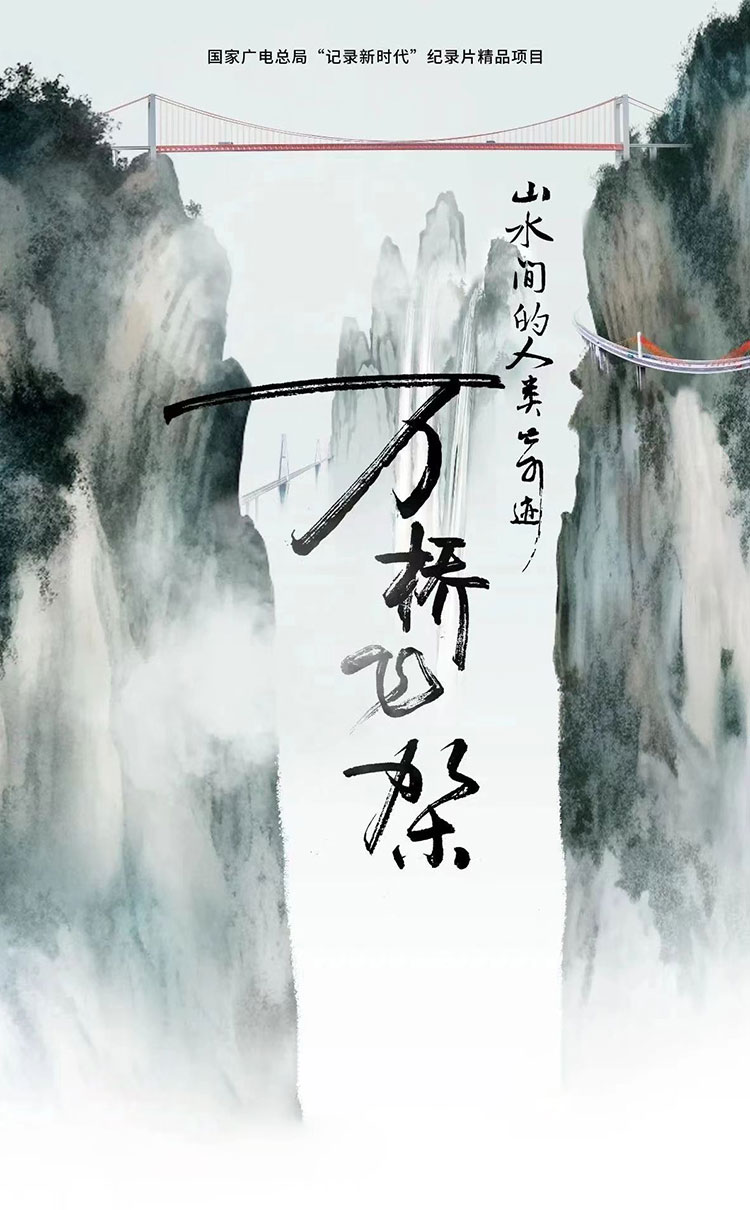 国家广电总局“记录新时代”纪录片精品项目
山水间的人类奇迹
万桥飞架